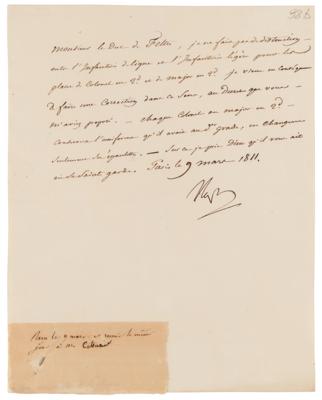 Monsieur le Duc de Feltre, je ne fais pas de distinction
entre l'Infanterie de ligne et l'Infanterie légère pour les
places de Colonel en 2d et de major en 2d je viens en conséquence
de faire une correction dans ce sens, au Decret que vous
m'aviez proposé. — chaque Colonel ou major en 2d
conservera l'uniforme qu'il avait au grade, en changeant
seulement les épaulettes. — Sur ce je prie Dieu qu'il vous ait
en sa Sainte garde. Paris le 9 mars 1811.
Nap
le 9 mars et le même
jour à Mr